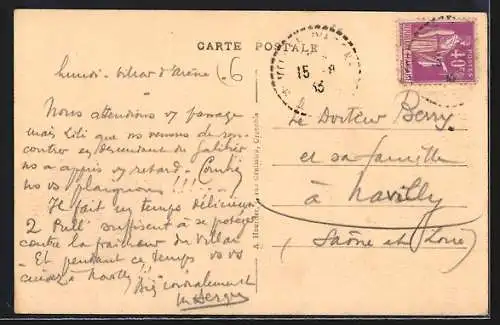 CARTE POSTALE
Lundi - Villar d'Arène
15-8
35
40c
Nous attendions vs passage
mais Lili que ns venons de ren-
contrer en descendant du Galibier
ns a appris vs retard. Combien
ns vs plaignons !!! ...
Il fait un temps délicieux
2 Pull suffisent à se protéger
contre la fraîcheur du Villar
Et pendant ce temps vs vs
cuisez à Navilly !!
Big cordialement
Le Docteur Berry
et sa famille
à Navilly
(Saône et Loire)
Grenoble